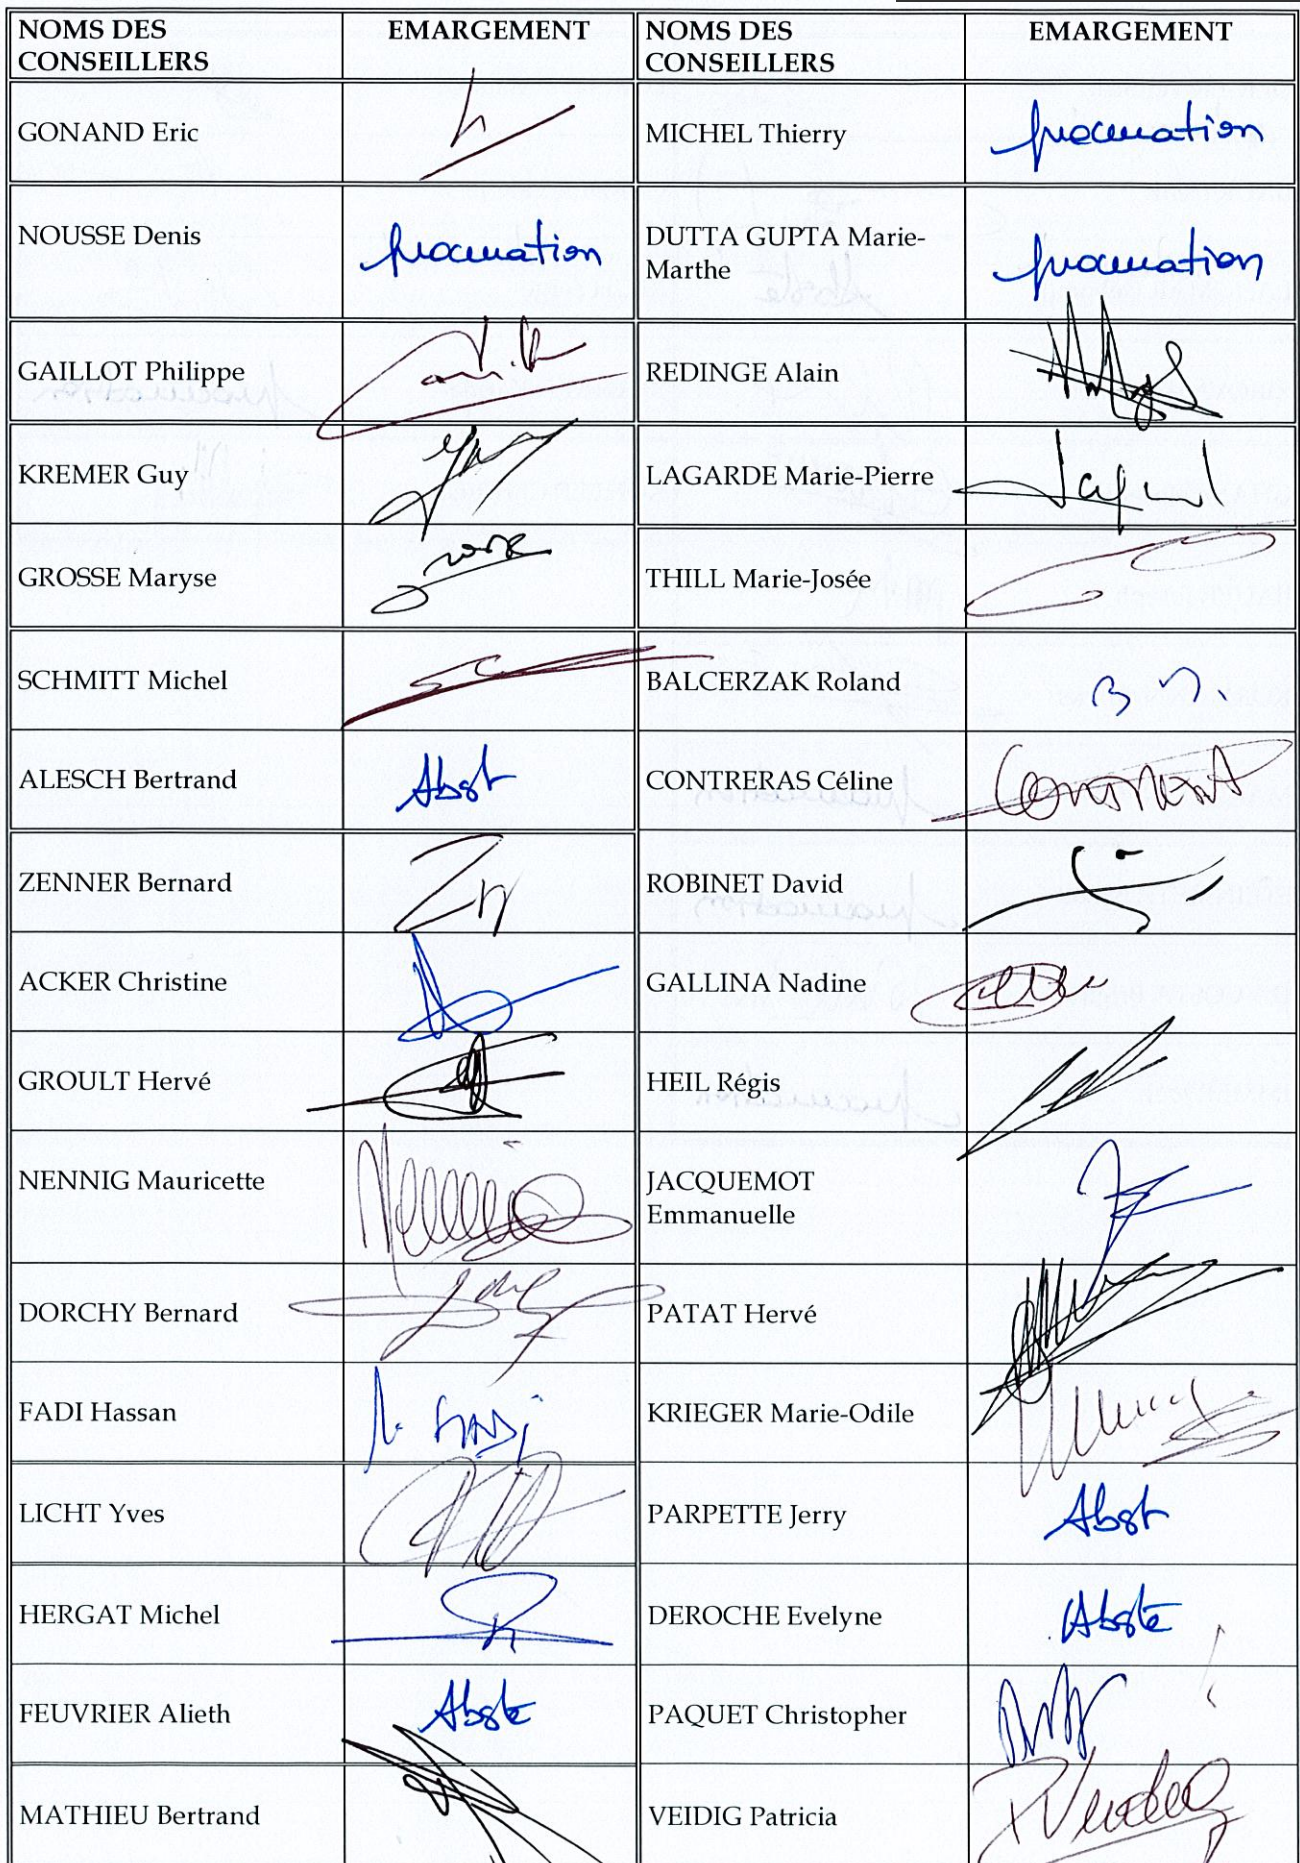 NOMS DES CONSEILLERS EMARGEMENT NOMS DES CONSEILLERS EMARGEMENT
GONAND Eric MICHEL Thierry procuration
NOUSSE Denis procuration DUTTA GUPTA Marie-Marthe procuration
GAILLOT Philippe REDINGE Alain
KREMER Guy LAGARDE Marie-Pierre
GROSSE Maryse THILL Marie-Josée
SCHMITT Michel BALCERZAK Roland
ALESCH Bertrand Abst CONTRERAS Céline
ZENNER Bernard ROBINET David
ACKER Christine GALLINA Nadine
GROULT Hervé HEIL Régis
NENNIG Mauricette JACQUEMOT Emmanuelle
DORCHY Bernard PATAT Hervé
FADI Hassan KRIEGER Marie-Odile
LICHT Yves PARPETTE Jerry Abst
HERGAT Michel DEROCHE Evelyne Abste
FEUVRIER Alieth Abste PAQUET Christopher
MATHIEU Bertrand VEIDIG Patricia